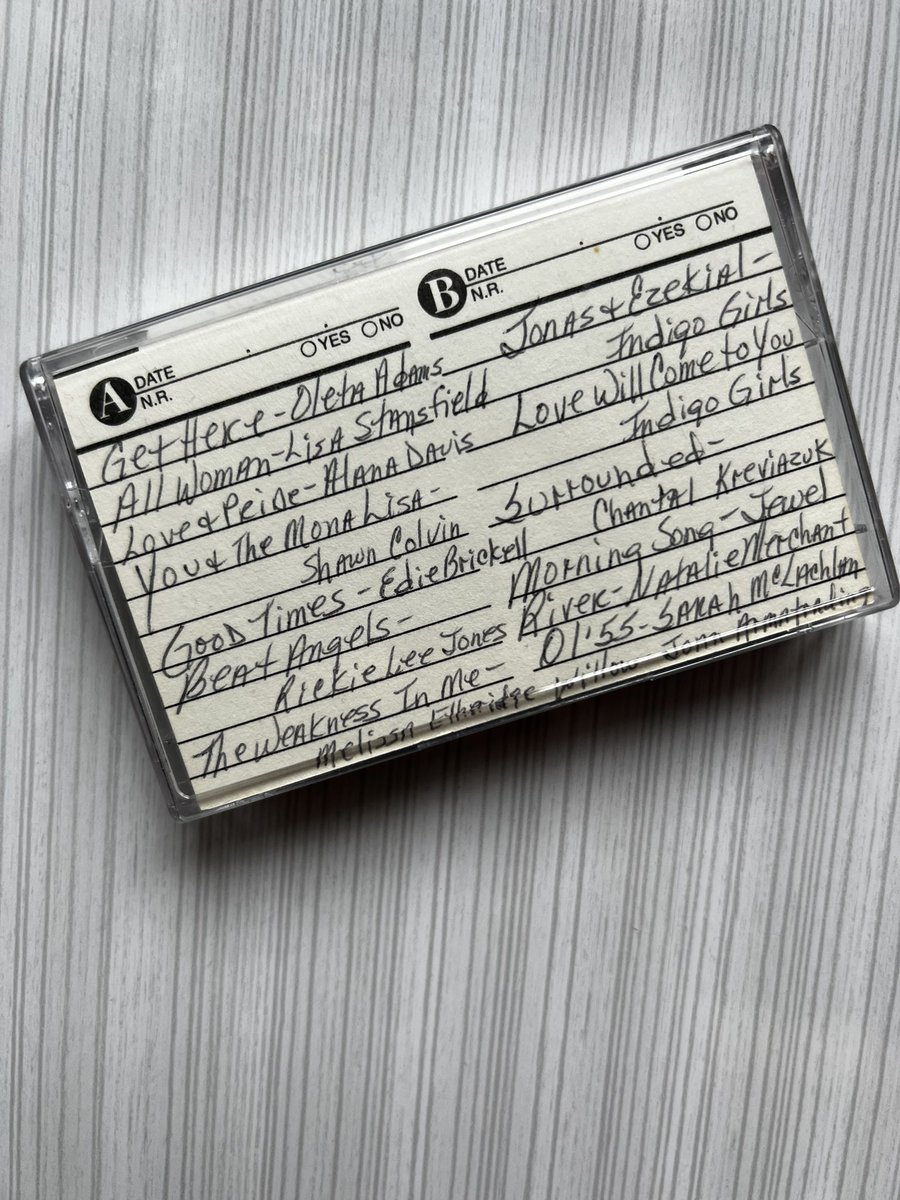 A DATE
N.R.
YES NO
Get Here - Oleta Adams
All Woman - Lisa Stansfield
Love & Peide - Alana Davis
You & The Mona Lisa -
Shawn Colvin
Good Times - Edie Brickell
Beat Angels -
Rickie Lee Jones
The Weakness In Me -
Melissa Etheridge
B DATE
N.R.
YES NO
Jonas & Ezekial -
Indigo Girls
Love Will Come to You
Indigo Girls
Surrounded -
Chantal Kreviazuk
Morning Song - Jewel
River - Natalie Merchant
Ol' 55 - Sarah McLachlan
Willow Joan Armatrading